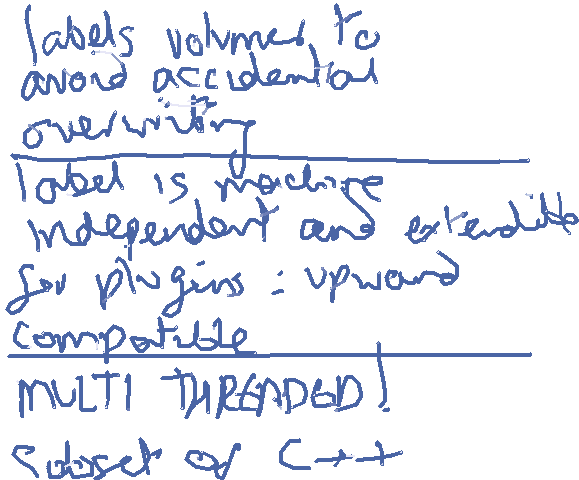 labels volumes to
avoid accidential
overwriting
label is machine
independent and extendible
for plugins : upward
compatible
MULTI THREADED!
subset of C++